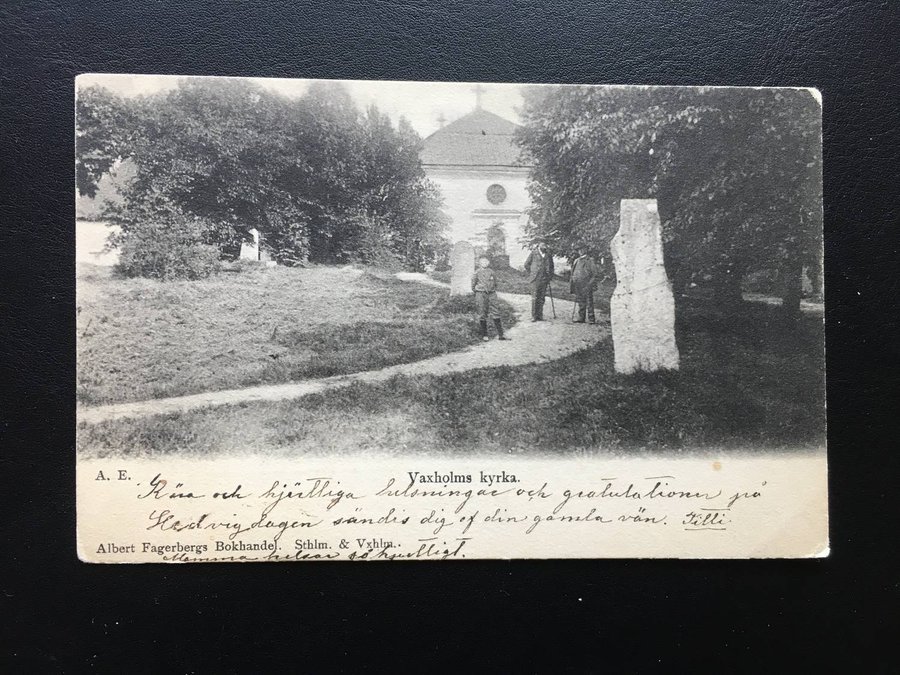 A. E. Vaxholms kyrka.
Kära och hjärtliga helsningar och gratulationer på
Hedvigdagen sändes dig af din gamla vän. Tilli
Albert Fagerbergs Bokhandel. Sthlm. & Vxhlm.
Mamma helsar så hjertligt.